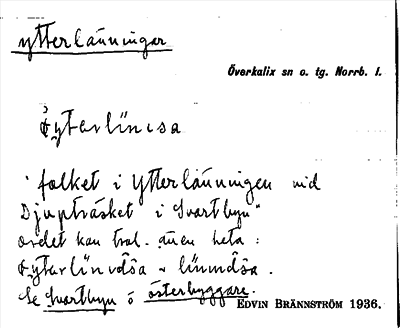 ytterlänningar
Överkalix sn o. tg. Norrb. l.
folket i Ytterlänningen vid
Djupträsket i Svartbyn"
ordet kan trol. även heta:
Se Svartbyn o österbyggare.
EDVIN BRÄNNSTRÖM 1936.